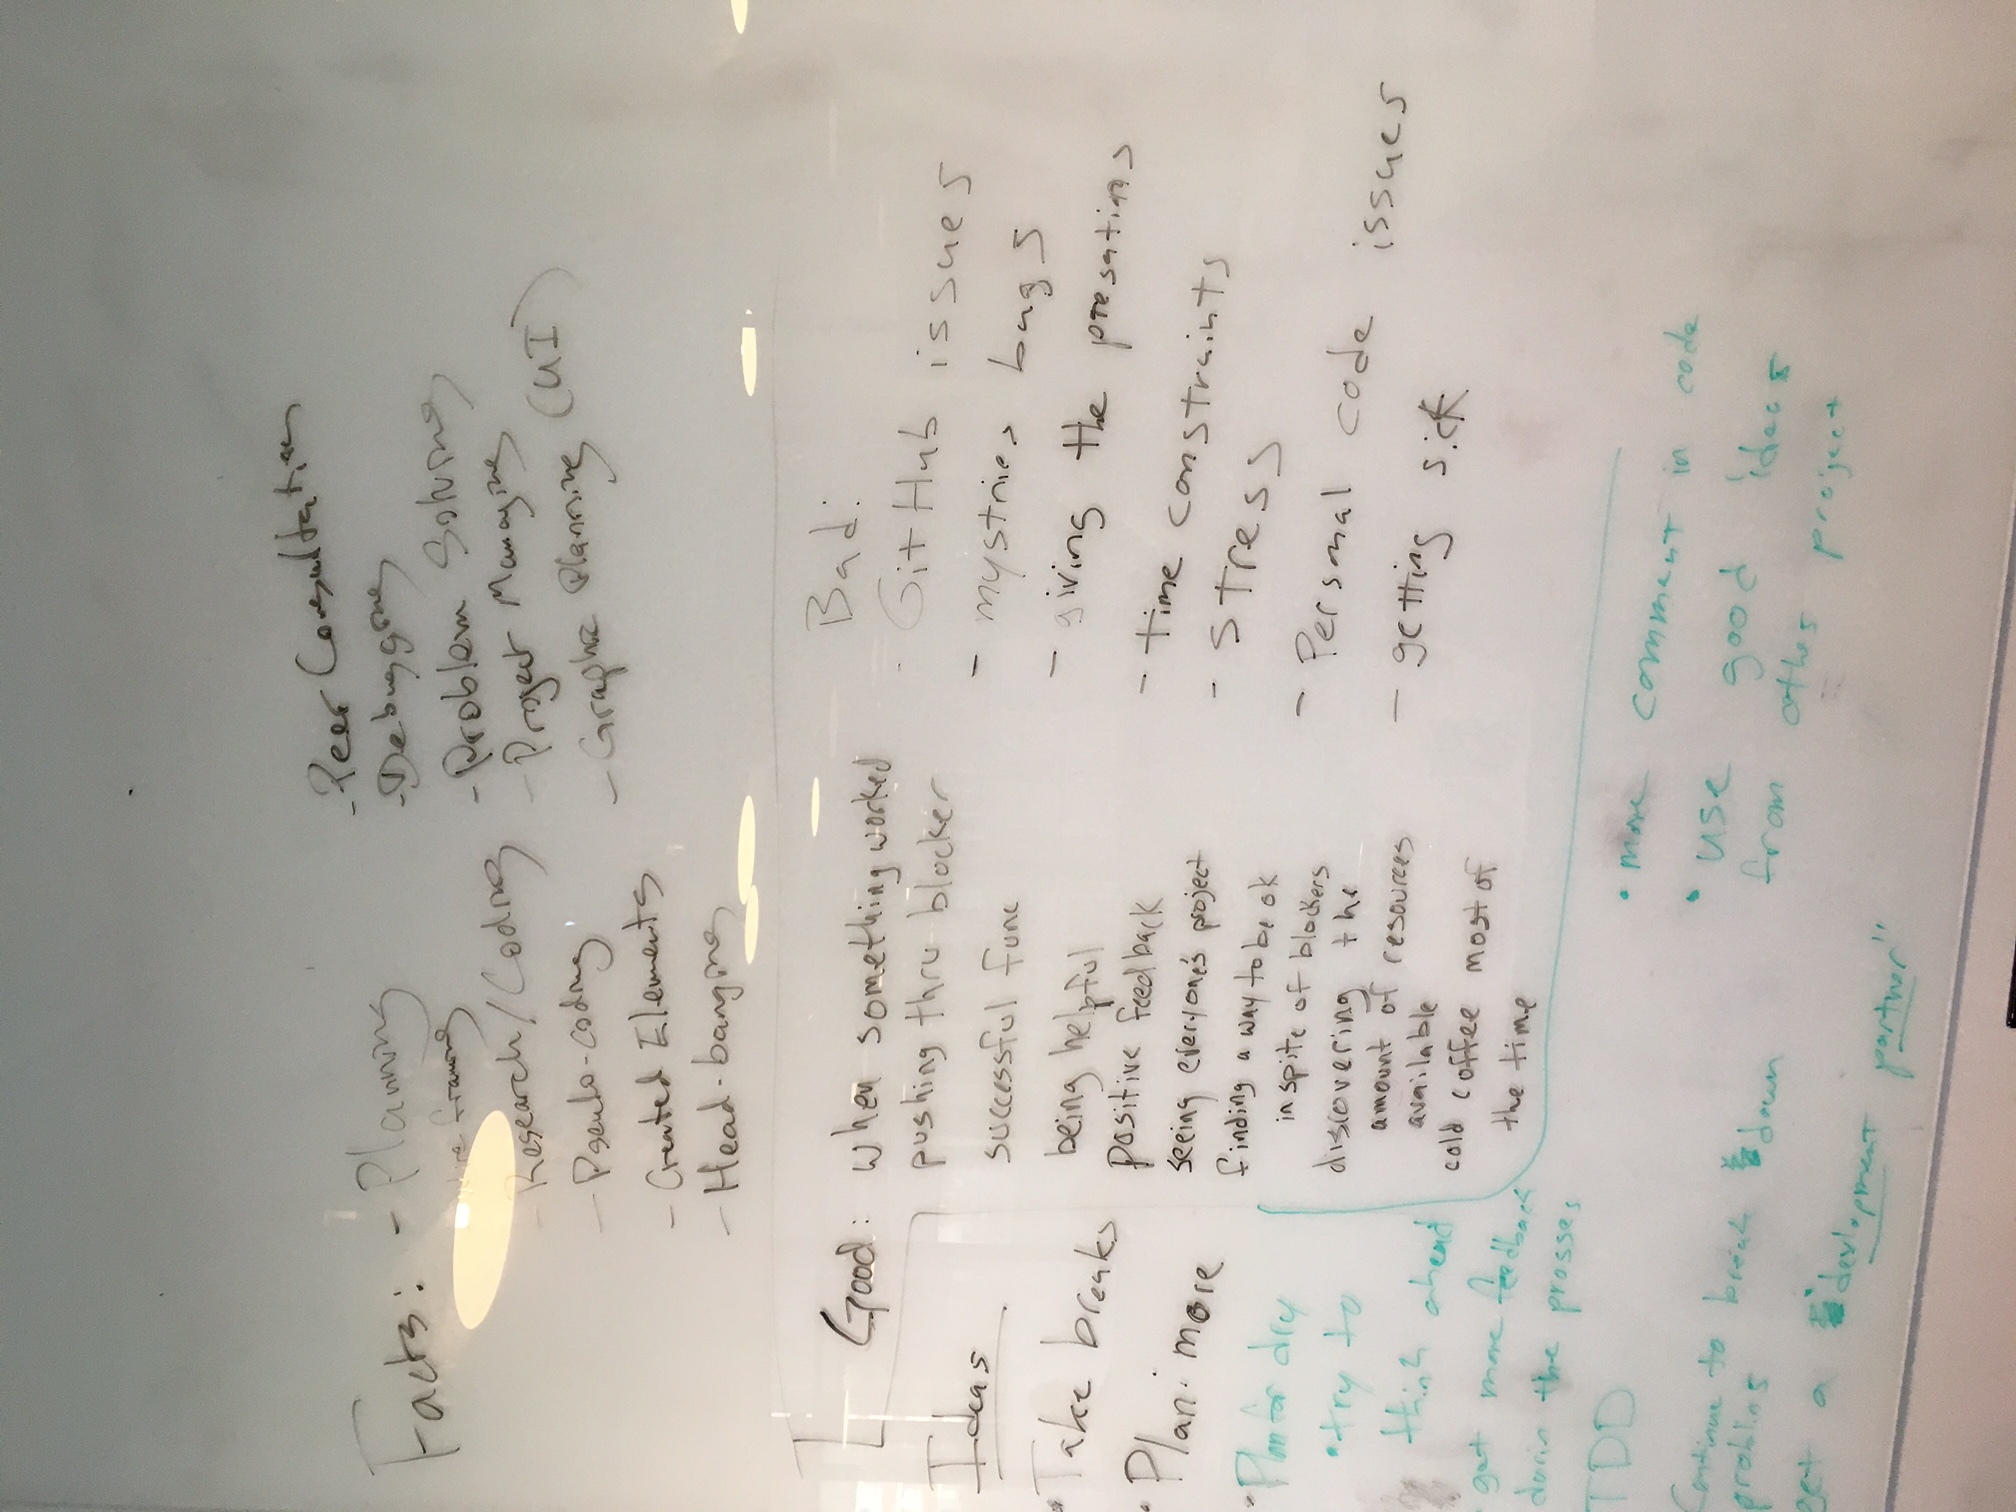 Facts:
- Planning
- Wire framing
- Research/Coding
- Pseudo-coding
- Created Elements
- Head-banging
- Peer Consultation
- Debugging
- Problem Solving
- Project Managing
- Graphic Planning (UI)
Good: when something worked
pushing thru blocker
successful func
being helpful
positive feedback
seeing everyone's project
finding a way to be ok
in spite of blockers
discovering the
amount of resources
available
cold coffee most of
the time
Bad:
- GitHub issues
- mystries bugs
- giving the presatins
- time constraints
- stress
- Personal code issues
- getting sick
Ideas
• Take breaks
• Plan more
• Plan for dry
• try to
think ahead
• get more feedback
dorin the prosses
TDD
Continue to break down
problins
get a "devlopment partner"
• more comment in code
• use good ideas
from othes project